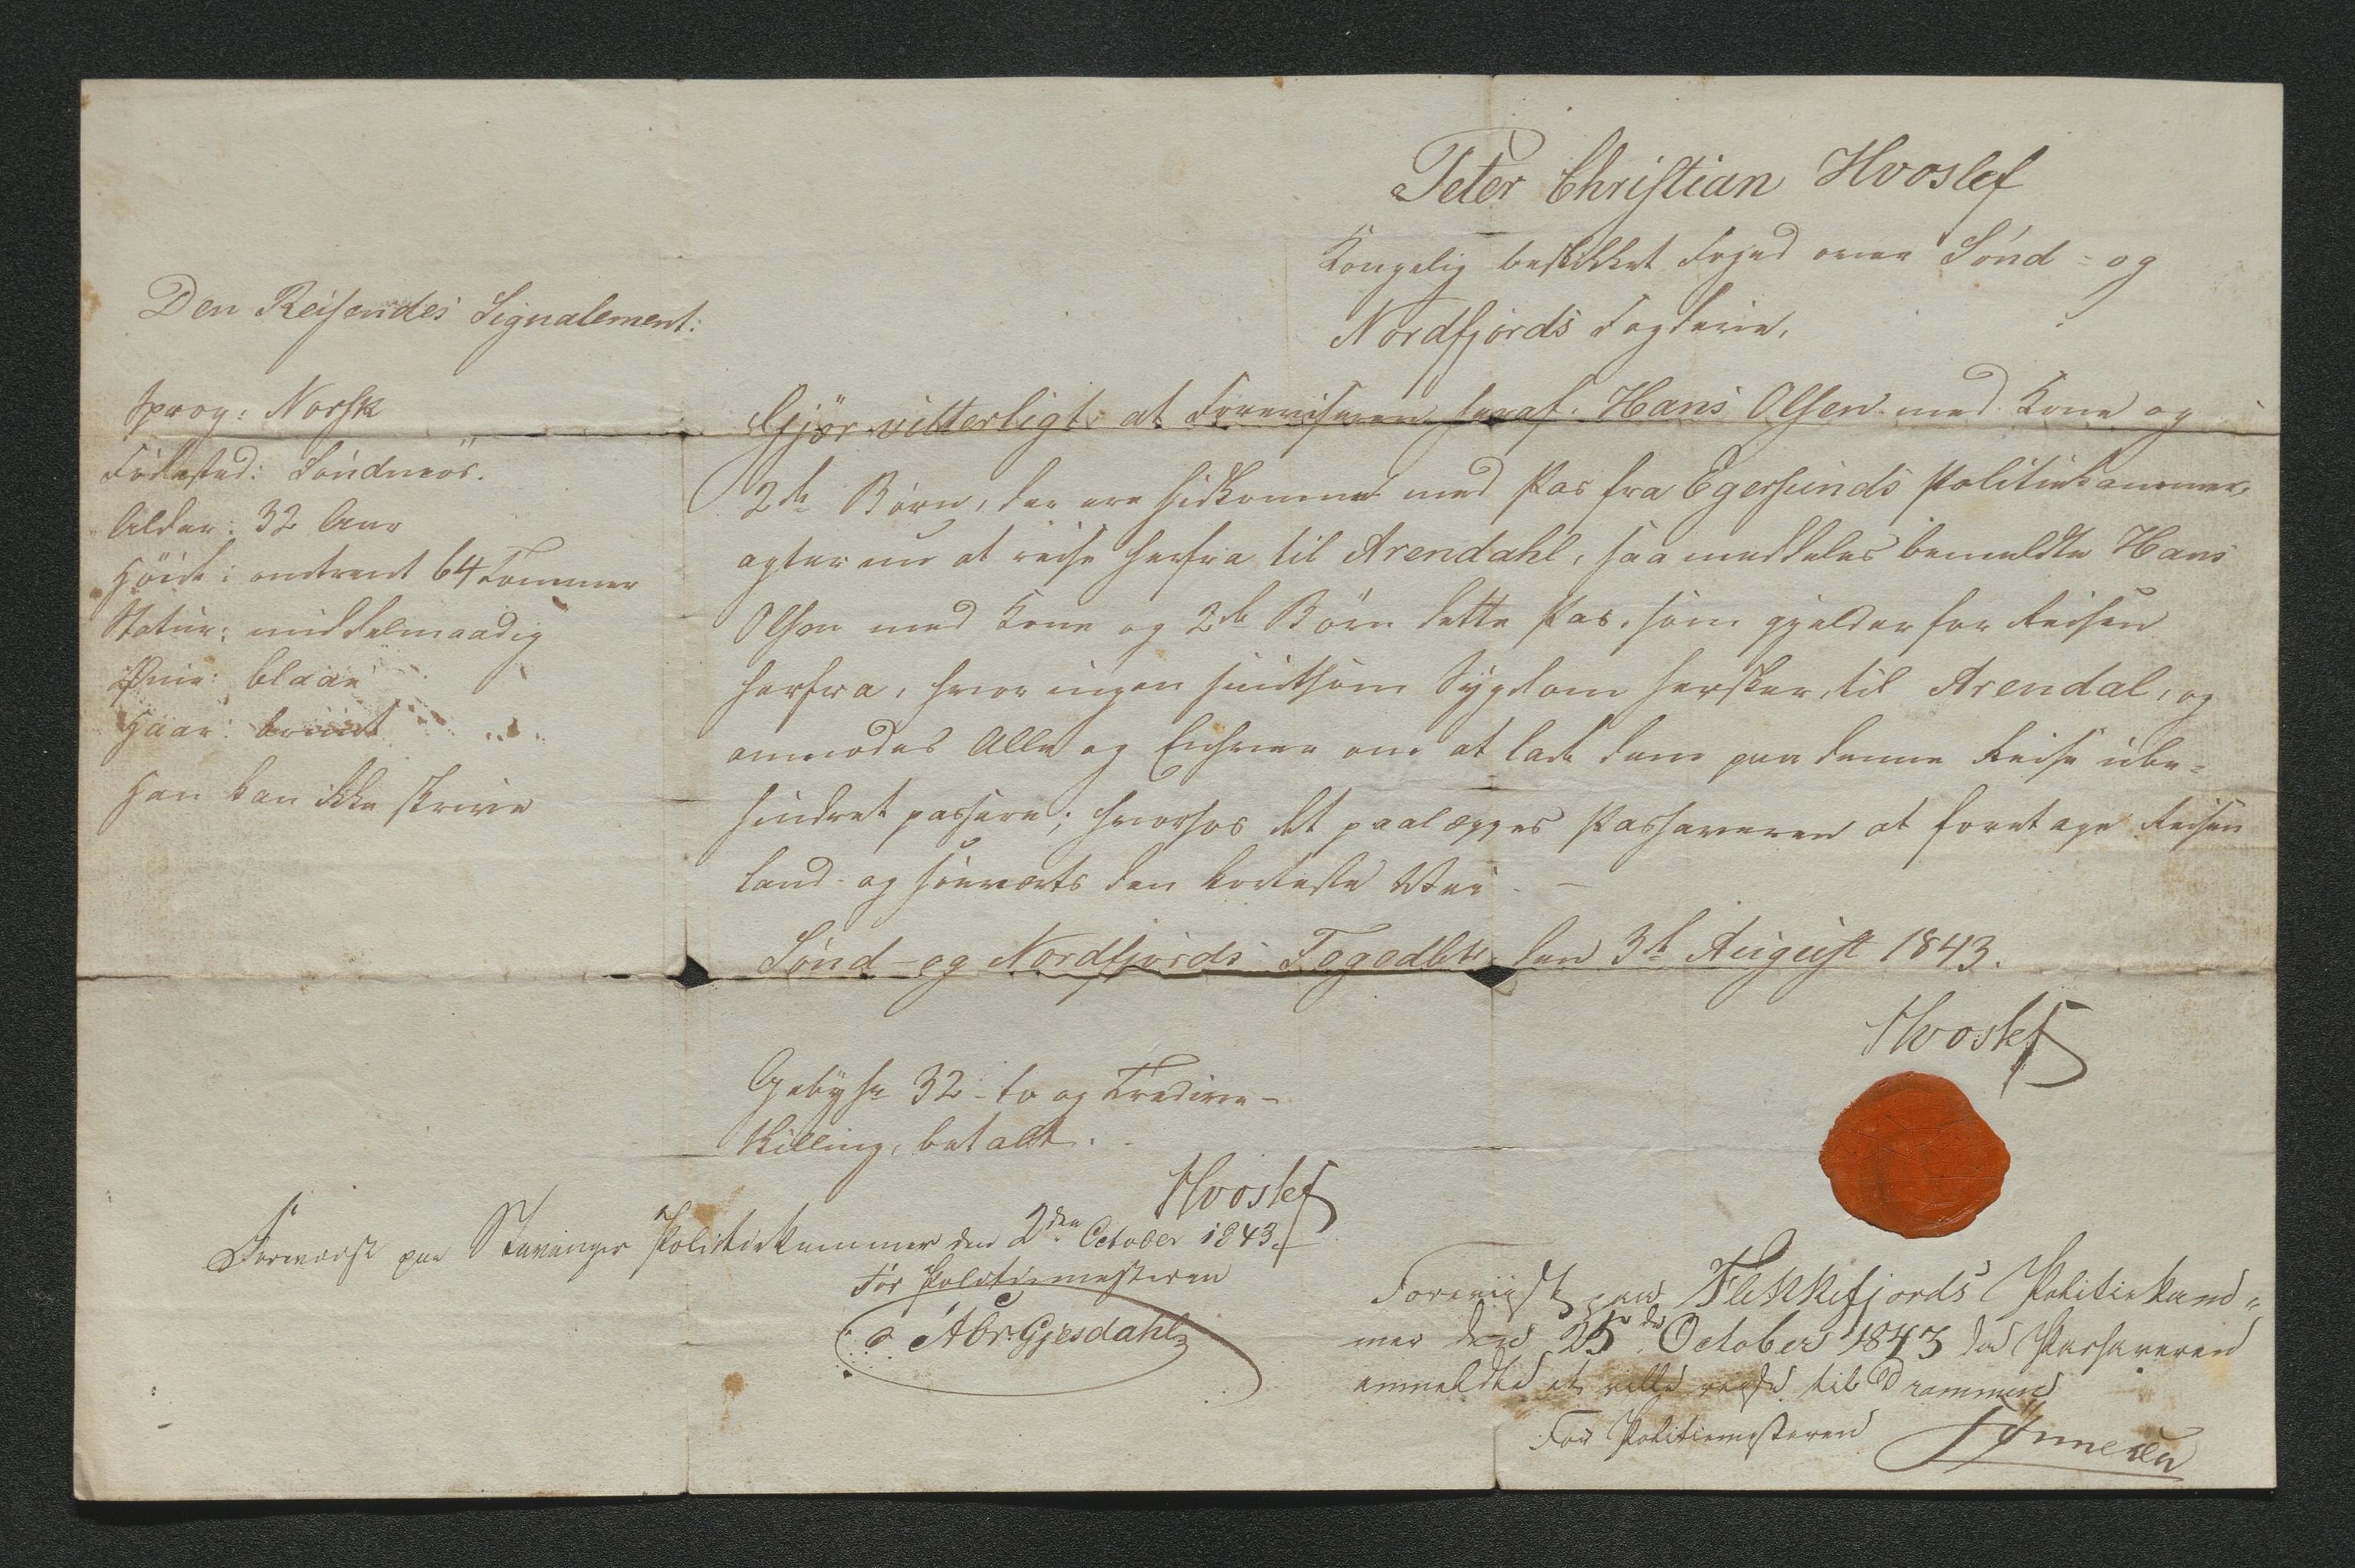 Peter Christian Hvoslef
Kongelig bestilket Foged over Sönd- og
Nordfjords Fogderie,
Den Reisendes Signalement:
Sprog: Norsk
Födested: Söndmör.
Alder: 32 Aar
Höide: omtrent 64 Tommer
Statur: middelmaadig
Øine: blaae
Haar: bruunt
Han kan ikke skrive
Gjør vitterligt: at Foreviseren heraf Hans Olsen med Kone og
2de Börn, der ere hidkomne med Pas fra Egersunds Politiekammer,
agter nu at reise herfra til Arendahl, saa meddeles bemeldte Hans
Olsen med Kone og 2de Börn dette Pas, som gjelder for Reisen
herfra, hvor ingen smitsom Sygdom hersker, til Arendal, og
anmodes Alle og Enhver om at lade dem paa denne Reise ube-
hindret passere; hvorhos det paalægges Pashaveren at foretage Reisen
land- og söeværts den korteste Vei. —
Sönd- og Nordfjords Fogedbk den 3de August 1843.
Hvoslef
Gebyhr 32 - to og Tredive -
skilling, betalt.
Hvoslef
Foreviist paa Stavanger Politiekammer den 2den October 1843.
For Politiemesteren
Abr. Gjesdahl
Foreviist paa Flekkefjords Politiekam-
mer den 25de October 1843 da Pashaveren
anmeldte at ville reise til Drammen
For Politiemesteren